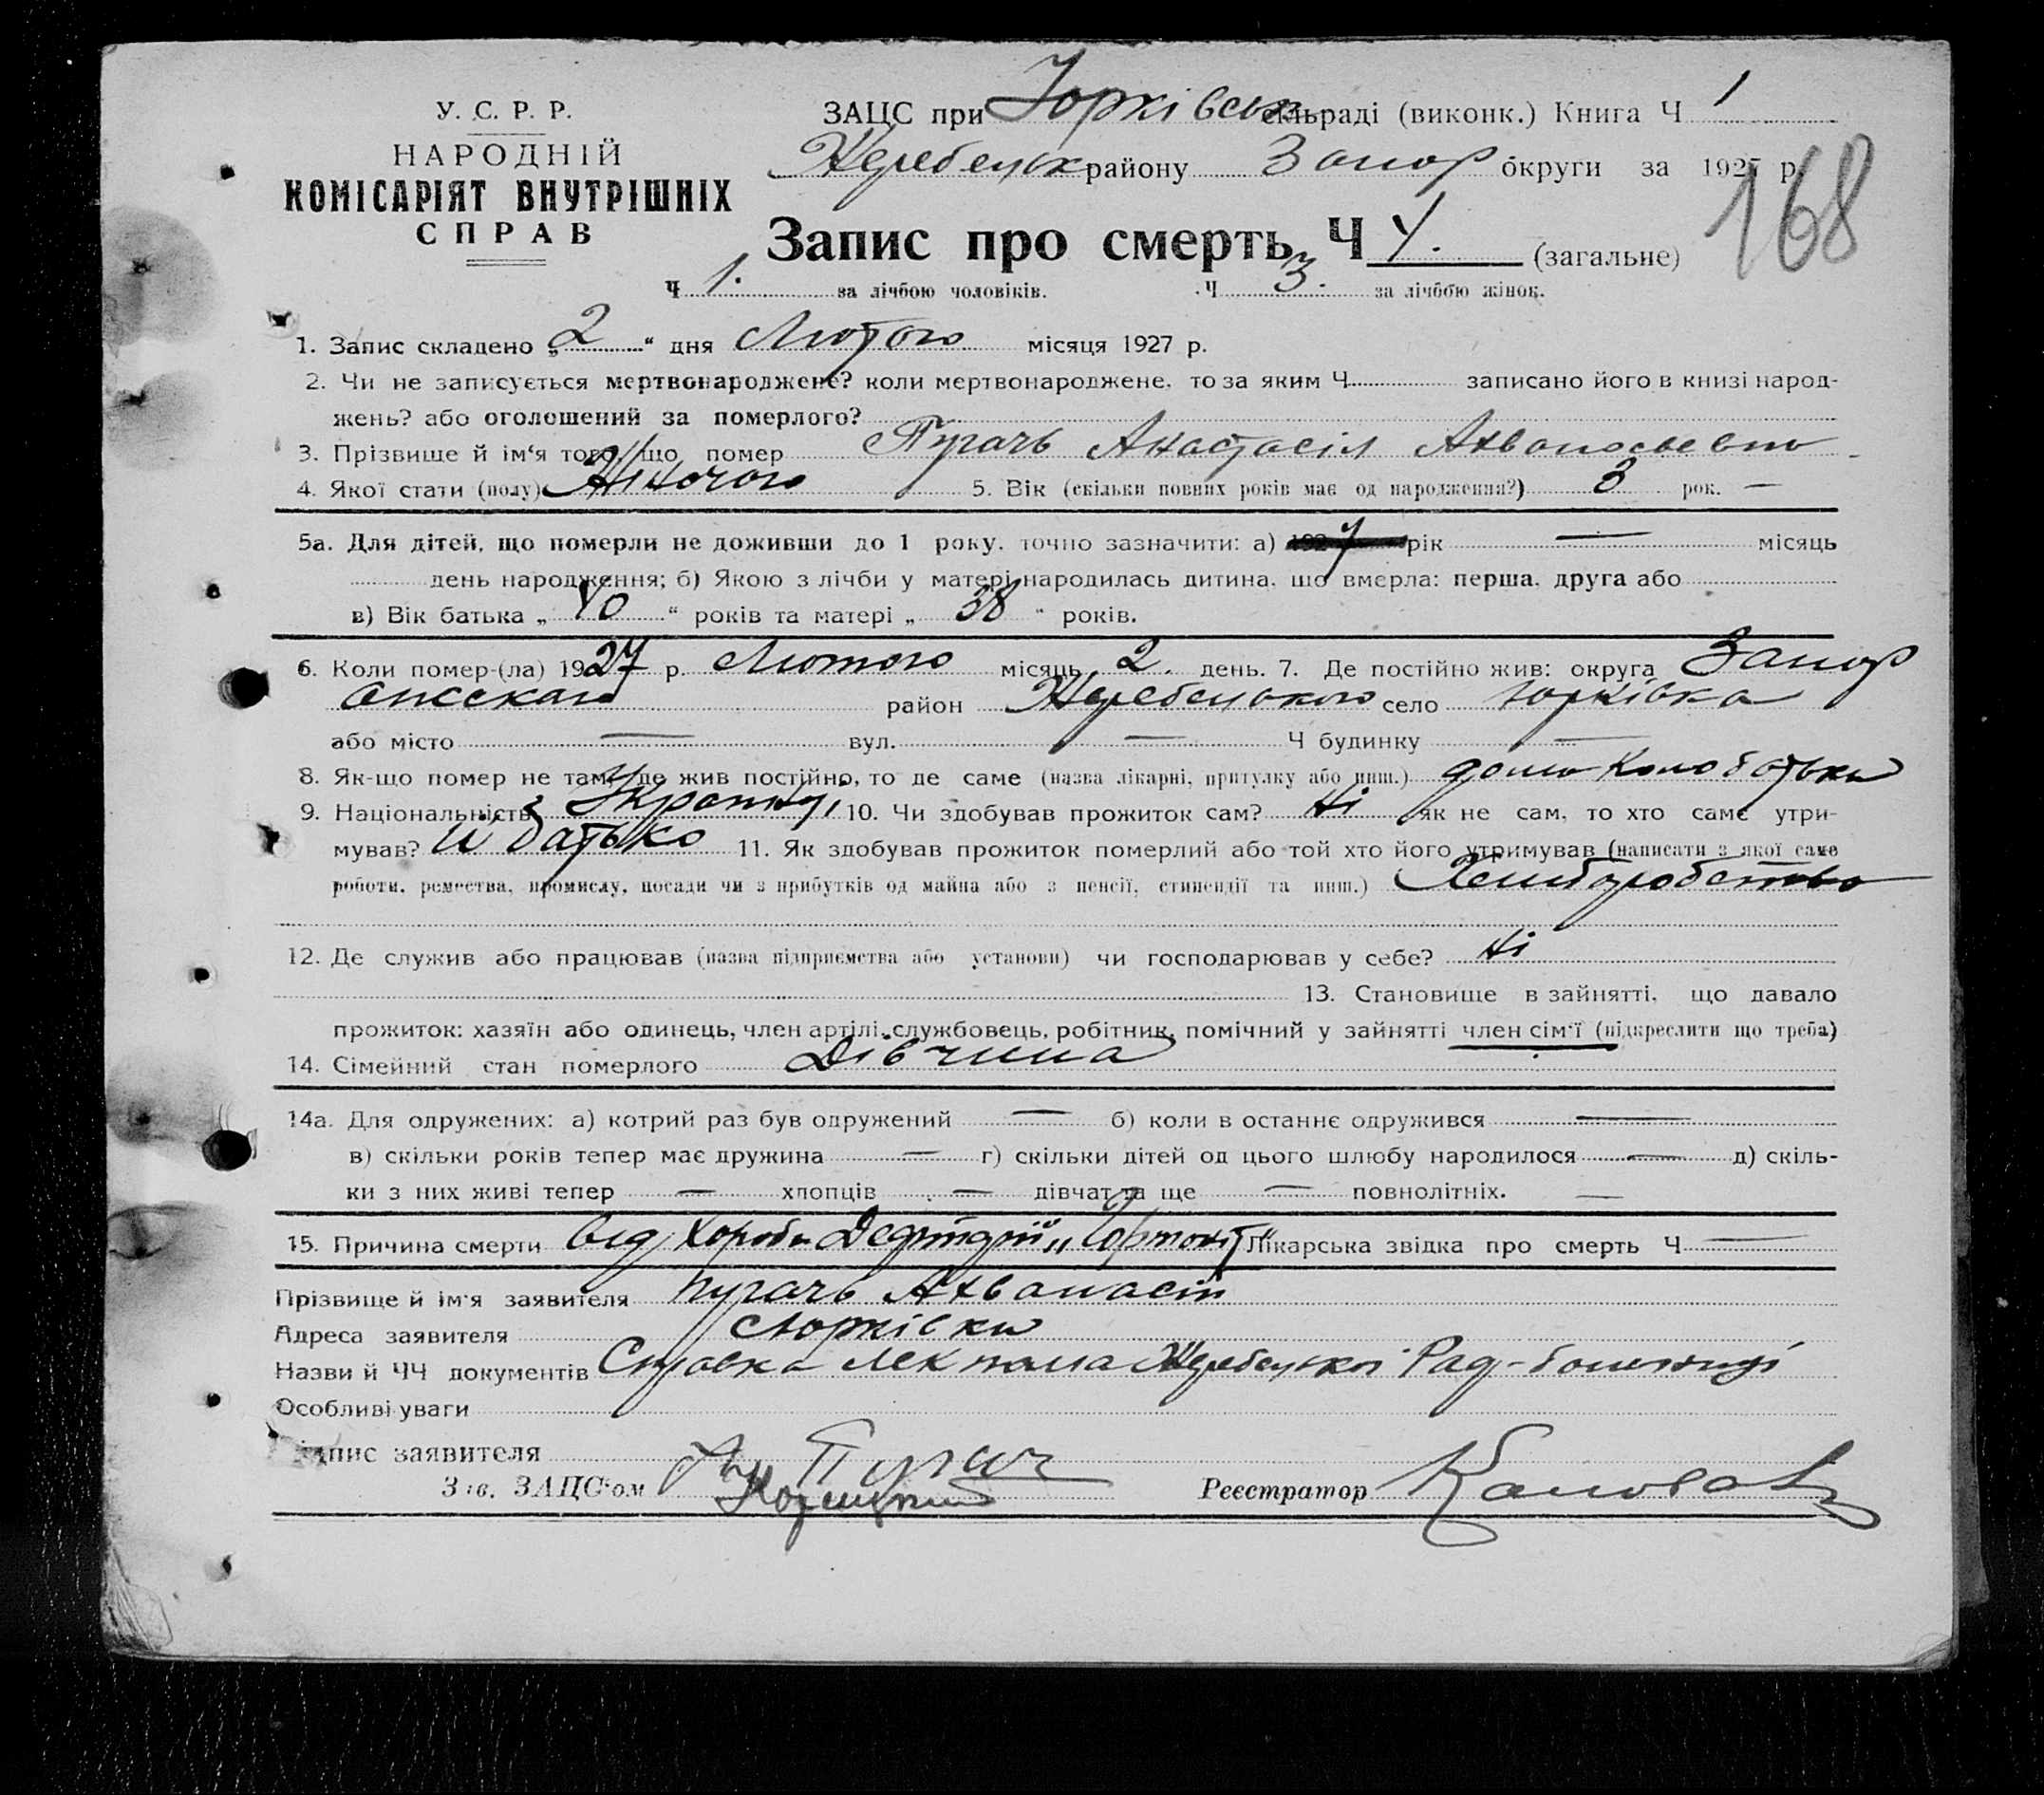 У. С. Р. Р.
НАРОДНІЙ
КОМІСАРІЯТ ВНУТРІШНІХ
СПРАВ
ЗАЦС при Юрківськ сільраді (виконк.) Книга Ч 1
Жеребецьк району Запор округи за 1927 р.
168
Запис про смерть Ч 4. (загальне)
Ч 1. за лічбою чоловіків. Ч 3. за лічбою жінок.
1. Запис складено „ 2 “ дня Лютого місяця 1927 р.
2. Чи не записується мертвонароджене? коли мертвонароджене, то за яким Ч записано його в книзі народ-
жень? або оголошений за померлого?
3. Прізвище й ім‘я того, що помер Пугачь Анастасія Ахванасьевна
4. Якої стати (полу) Жіночого 5. Вік (скільки повних років має од народження?) 3 рок. —
5а. Для дітей, що померли не доживши до 1 року, точно зазначити: а) 1927 рік — місяць
день народження; б) Якою з лічби у матері народилась дитина, що вмерла: перша, друга або
в) Вік батька „ 40 “ років та матері „ 38 “ років.
6. Коли помер-(ла) 1927 р. Лютого місяць 2. день. 7. Де постійно жив: округа Запор
район Жеребецького село Юрківка
або місто — вул. — Ч будинку —
8. Як-що помер не там, де жив постійно, то де саме (назва лікарні, притулку або инш.) дома коло батька
9. Національність 10. Чи здобував прожиток сам? Ні як не сам, то хто саме утри-
мував? її батько 11. Як здобував прожиток померлий або той хто його утримував (написати з якої саме
роботи, ремества, промислу, посади чи з прибутків од майна або з пенсії, стипендії та инш.) Хлиборобство
12. Де служив або працював (назва підприємства або установи) чи господарював у себе? Ні
13. Становище в зайнятті, що давало
прожиток: хазяїн або одинець, член артілі, службовець, робітник, помічний у зайнятті член сім‘ї (підкреслити що треба)
14. Сімейний стан померлого Дівчина
14а. Для одружених: а) котрий раз був одружений — б) коли в останнє одружився —
в) скільки років тепер має дружина — г) скільки дітей од цього шлюбу народилося — д) скіль-
ки з них живі тепер — хлопців — дівчат та ще — повнолітніх. —
15. Причина смерти від хороби Лікарська звідка про смерть Ч —
Прізвище й ім‘я заявителя Пугачь Ахванасій
Адреса заявителя с Юрківки
Назви й ЧЧ документів Справка Лекпома Жеребецької Рад-больниці
Особливі уваги
Підпис заявителя Пугач
Зав. ЗАЦС‘ом
Реєстратор